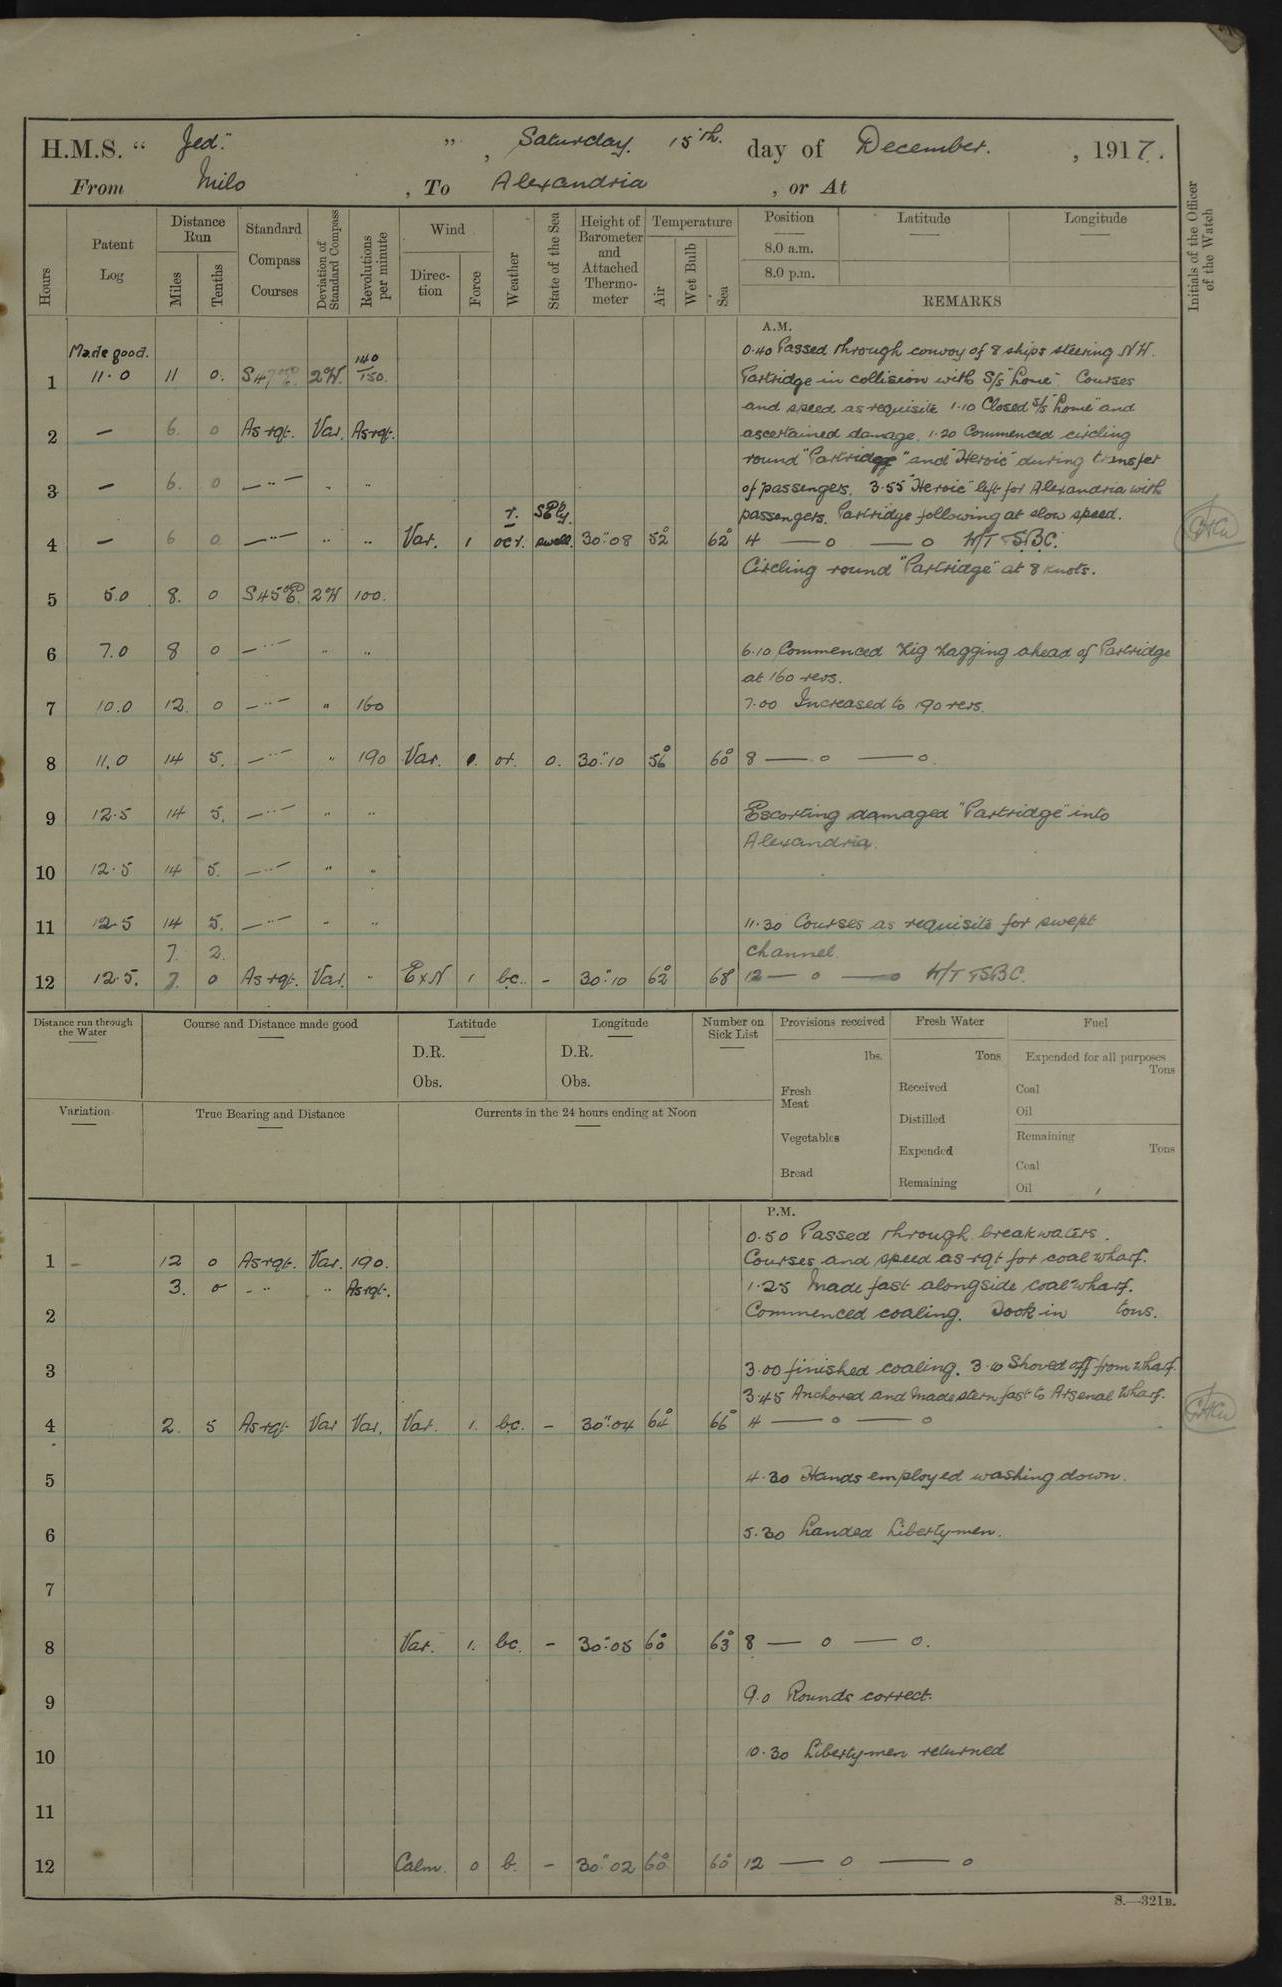 H.M.S. "Jed." ", Saturday. 15th. day of December. , 1917.
From Milo , To Alexandria , or At
Hours
Patent Log
Distance Run
Miles
Tenths
Standard Compass Courses
Deviation of Standard Compass
Revolutions per minute
Wind
Direction
Force
Weather
State of the Sea
Height of Barometer and Attached Thermometer
Temperature
Air
Wet Bulb
Sea
Position Latitude Longitude
8.0 a.m.
8.0 p.m.
REMARKS
Initials of the Officer of the Watch
A.M.
Made good. 140
0.40 Passed through convoy of 8 ships steering NW.
1 11.0 11 0. 2°W. 150. Partridge in collision with S/s "Lome". Courses
and speed as requisite 1.10 Closed S/s "Lome" and
2 — 6. 0 As rqt. Var. As rqt. ascertained damage. 1.20 Commenced circling
round "Partridge" and "Heroic" during transfer
3 — 6. 0 —"— " " of passengers. 3.55 "Heroic" left for Alexandria with
r. Sly. passengers. Partridge following at slow speed.
4 — 6 0 —"— " " Var. 1 ocr. swell. 30".08 52° 62° 4 — o — o W/T TSBC.
Circling round "Partridge" at 8 knots.
5 5.0 8. 0 S45°E. 2W 100.
6 7.0 8 0 —"— " " 6.10 Commenced Zig Zagging ahead of Partridge
at 160 revs.
7 10.0 12 0 —"— " 160 7.00 Increased to 190 revs.
8 11.0 14 5. —"— " 190 Var. 1. or. 0. 30".10 56° 60° 8 — o — o.
9 12.5 14 5. —"— " " Escorting damaged "Partridge" into
Alexandria.
10 12.5 14 5. —"— " "
11 12.5 14 5. —"— " " 11.30 Courses as requisite for swept
7 2. channel.
12 12.5. 7. 0 As rqt. Var. " ExN 1 bc. - 30".10 62° 68 12 — o — o W/T TSBC.
Distance run through the Water
Course and Distance made good
Latitude
D.R.
Obs.
Longitude
D.R.
Obs.
Number on Sick List
Provisions received
lbs.
Fresh Meat
Vegetables
Bread
Fresh Water
Tons
Received
Distilled
Expended
Remaining
Fuel
Expended for all purposes
Tons
Coal
Oil
Remaining
Tons
Coal
Oil
Variation
True Bearing and Distance
Currents in the 24 hours ending at Noon
P.M.
0.50 Passed through breakwaters.
1 - 12 0 As rqt. Var. 190. Courses and speed as rqt for coal wharf.
3. 0 - " " As rqt. 1.25 Made fast alongside coal wharf.
2 Commenced coaling. Took in tons.
3 3.00 finished coaling. 3.10 Shoved off from wharf
3.45 Anchored and made stern fast to Arsenal Wharf.
4 2. 5 As rqt Var Var. Var. 1. bc. - 30".04 64° 66° 4 — o — o
5 4.30 Hands employed washing down.
6 5.30 Landed Libertymen.
7
8 Var. 1. bc. - 30".05 60° 63° 8 — o — o.
9 9.0 Rounds correct.
10 10.30 Libertymen returned
11
12 Calm. 0 b. - 30".02 60° 60° 12 — o — o
S.—321B.